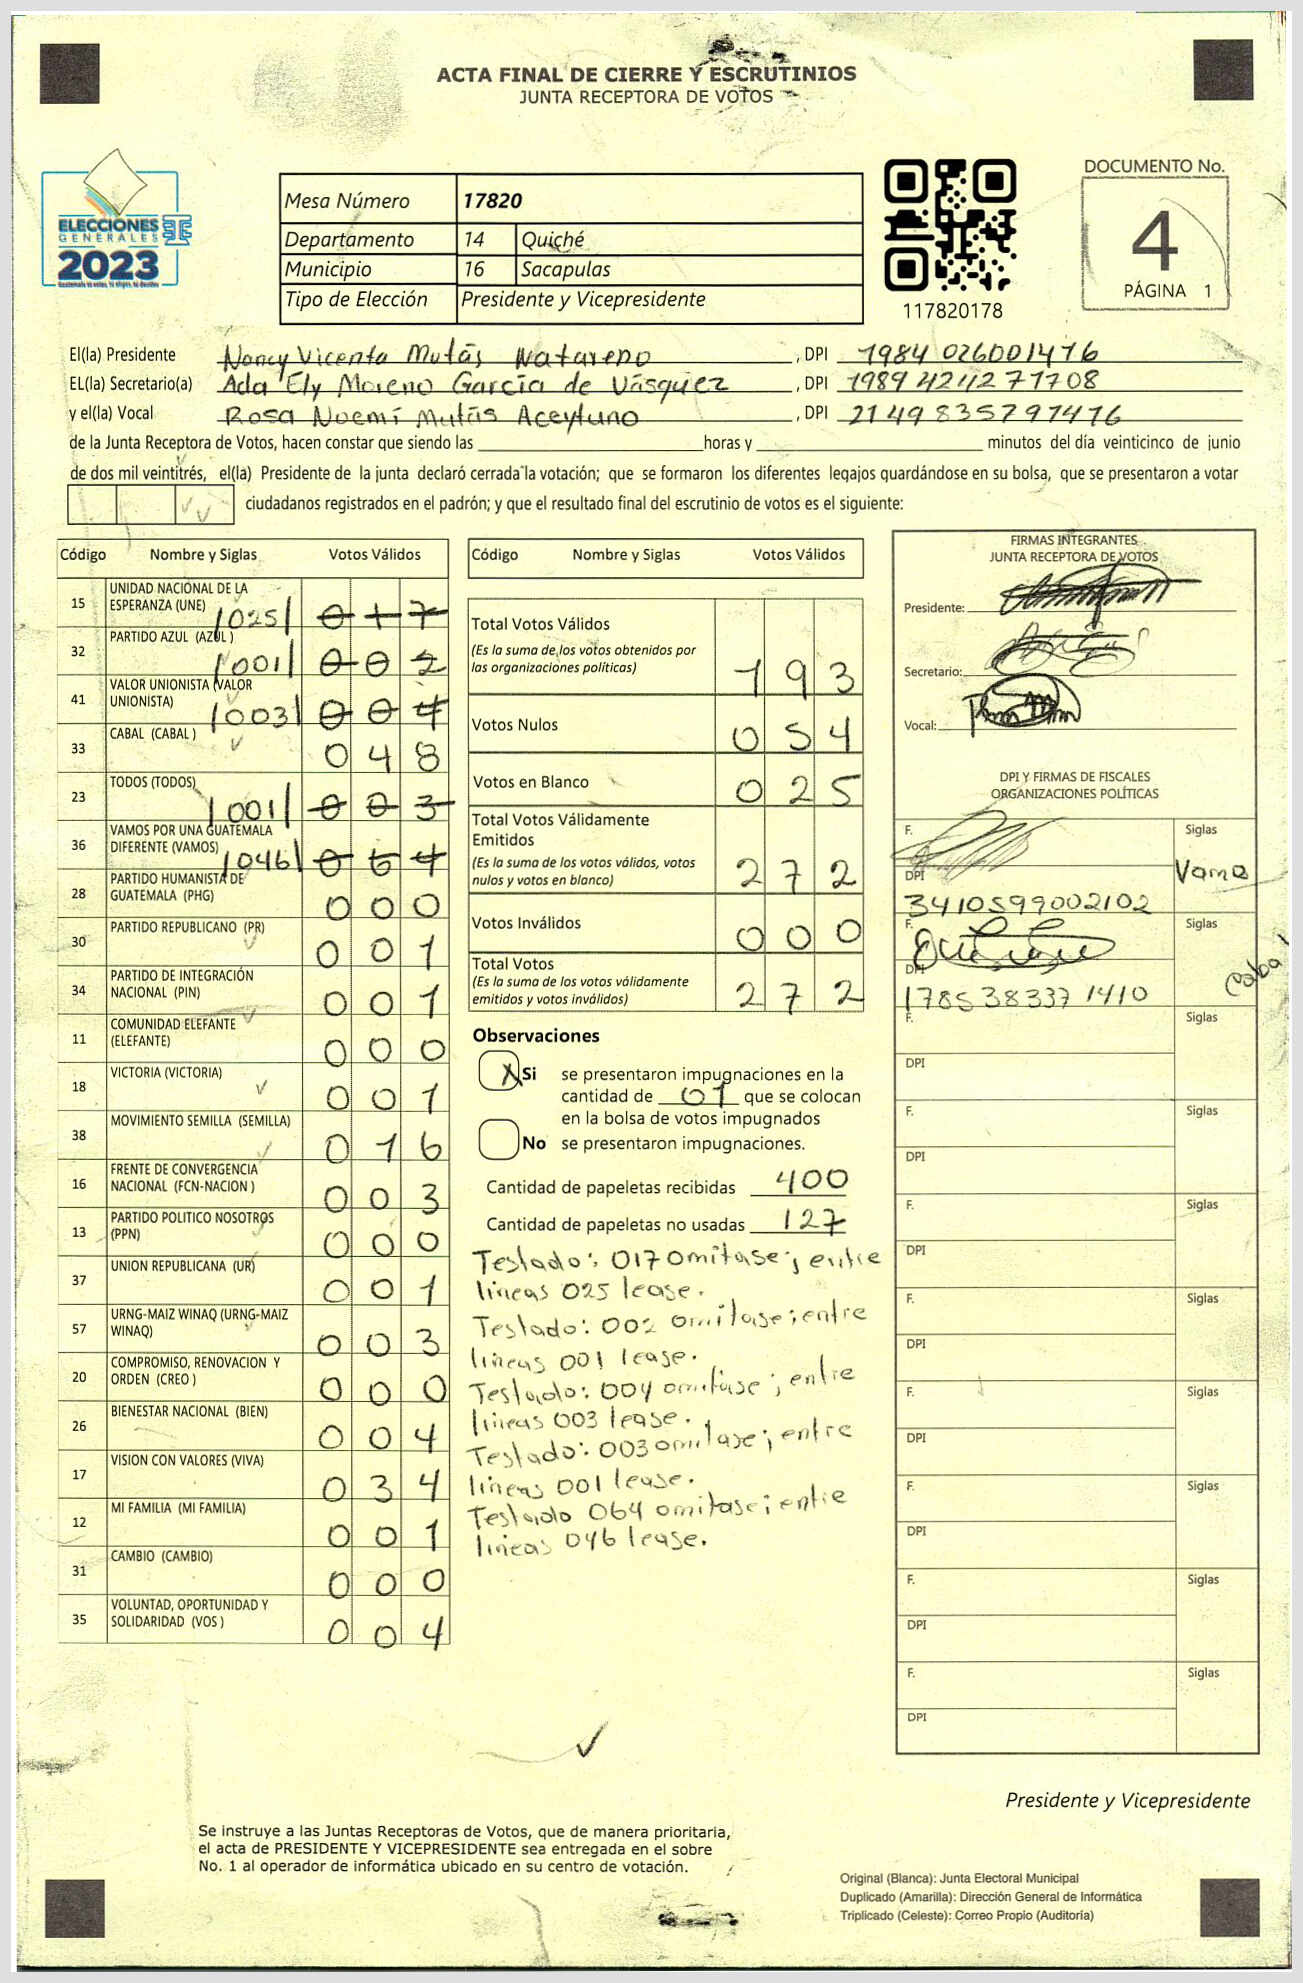 ACTA FINAL DE CIERRE Y ESCRUTINIOS
JUNTA RECEPTORA DE VOTOS
ELECCIONES
GENERALES
2023
Mesa Número 17820
Departamento 14 Quiché
Municipio 16 Sacapulas
Tipo de Elección Presidente y Vicepresidente
117820178
DOCUMENTO No.
4
PÁGINA 1
El(la) Presidente Nancy Vicenta Mutás Natareno, DPI 1984 026001416
EL(la) Secretario(a) Ada Ely Moreno García de Vásquez, DPI 1989424271708
y el(la) Vocal Rosa Noemí Mutás Aceytuno, DPI 2149835791416
de la Junta Receptora de Votos, hacen constar que siendo las horas y minutos del día veinticinco de junio
de dos mil veintitrés, el(la) Presidente de la junta declaró cerrada la votación; que se formaron los diferentes legajos quardándose en su bolsa, que se presentaron a votar
ciudadanos registrados en el padrón; y que el resultado final del escrutinio de votos es el siguiente:
Código Nombre y Siglas Votos Válidos
15 UNIDAD NACIONAL DE LA
ESPERANZA (UNE) /025/ 017
32 PARTIDO AZUL (AZUL ) /001/ 002
41 VALOR UNIONISTA (VALOR
UNIONISTA) /003/ 004
33 CABAL (CABAL ) 048
23 TODOS (TODOS) /001/ 003
36 VAMOS POR UNA GUATEMALA
DIFERENTE (VAMOS) /046/ 064
28 PARTIDO HUMANISTA DE
GUATEMALA (PHG) 000
30 PARTIDO REPUBLICANO (PR) 001
34 PARTIDO DE INTEGRACIÓN
NACIONAL (PIN) 001
11 COMUNIDAD ELEFANTE
(ELEFANTE) 000
18 VICTORIA (VICTORIA) 001
38 MOVIMIENTO SEMILLA (SEMILLA) 016
16 FRENTE DE CONVERGENCIA
NACIONAL (FCN-NACION ) 003
13 PARTIDO POLITICO NOSOTROS
(PPN) 000
37 UNION REPUBLICANA (UR) 001
57 URNG-MAIZ WINAQ (URNG-MAIZ
WINAQ) 003
20 COMPROMISO, RENOVACION Y
ORDEN (CREO ) 000
26 BIENESTAR NACIONAL (BIEN) 004
17 VISION CON VALORES (VIVA) 034
12 MI FAMILIA (MI FAMILIA) 001
31 CAMBIO (CAMBIO) 000
35 VOLUNTAD, OPORTUNIDAD Y
SOLIDARIDAD (VOS ) 004
Código Nombre y Siglas Votos Válidos
Total Votos Válidos
(Es la suma de los votos obtenidos por
las organizaciones políticas) 193
Votos Nulos 054
Votos en Blanco 025
Total Votos Válidamente
Emitidos
(Es la suma de los votos válidos, votos
nulos y votos en blanco) 272
Votos Inválidos 000
Total Votos
(Es la suma de los votos válidamente
emitidos y votos inválidos) 272
Observaciones
X Si se presentaron impugnaciones en la
cantidad de 01 que se colocan
en la bolsa de votos impugnados
No se presentaron impugnaciones.
Cantidad de papeletas recibidas 400
Cantidad de papeletas no usadas 127
Testado: 017 omitase; entre
lineas 025 lease.
Testado: 002 omitase; entre
lineas 001 lease.
Testado: 004 omitase; entre
lineas 003 lease.
Testado: 003 omitase; entre
lineas 001 lease.
Testado 064 omitase; entre
lineas 046 lease.
FIRMAS INTEGRANTES
JUNTA RECEPTORA DE VOTOS
Presidente:
Secretario:
Vocal:
DPI Y FIRMAS DE FISCALES
ORGANIZACIONES POLÍTICAS
F. Siglas
Vamo
DPI
3410599002102
F. Siglas
Caba
DPI
1785383371410
F. Siglas
DPI
F. Siglas
DPI
F. Siglas
DPI
F. Siglas
DPI
F. Siglas
DPI
F. Siglas
DPI
F. Siglas
DPI
F. Siglas
DPI
Presidente y Vicepresidente
Se instruye a las Juntas Receptoras de Votos, que de manera prioritaria,
el acta de PRESIDENTE Y VICEPRESIDENTE sea entregada en el sobre
No. 1 al operador de informática ubicado en su centro de votación.
Original (Blanca): Junta Electoral Municipal
Duplicado (Amarilla): Dirección General de Informática
Triplicado (Celeste): Correo Propio (Auditoría)